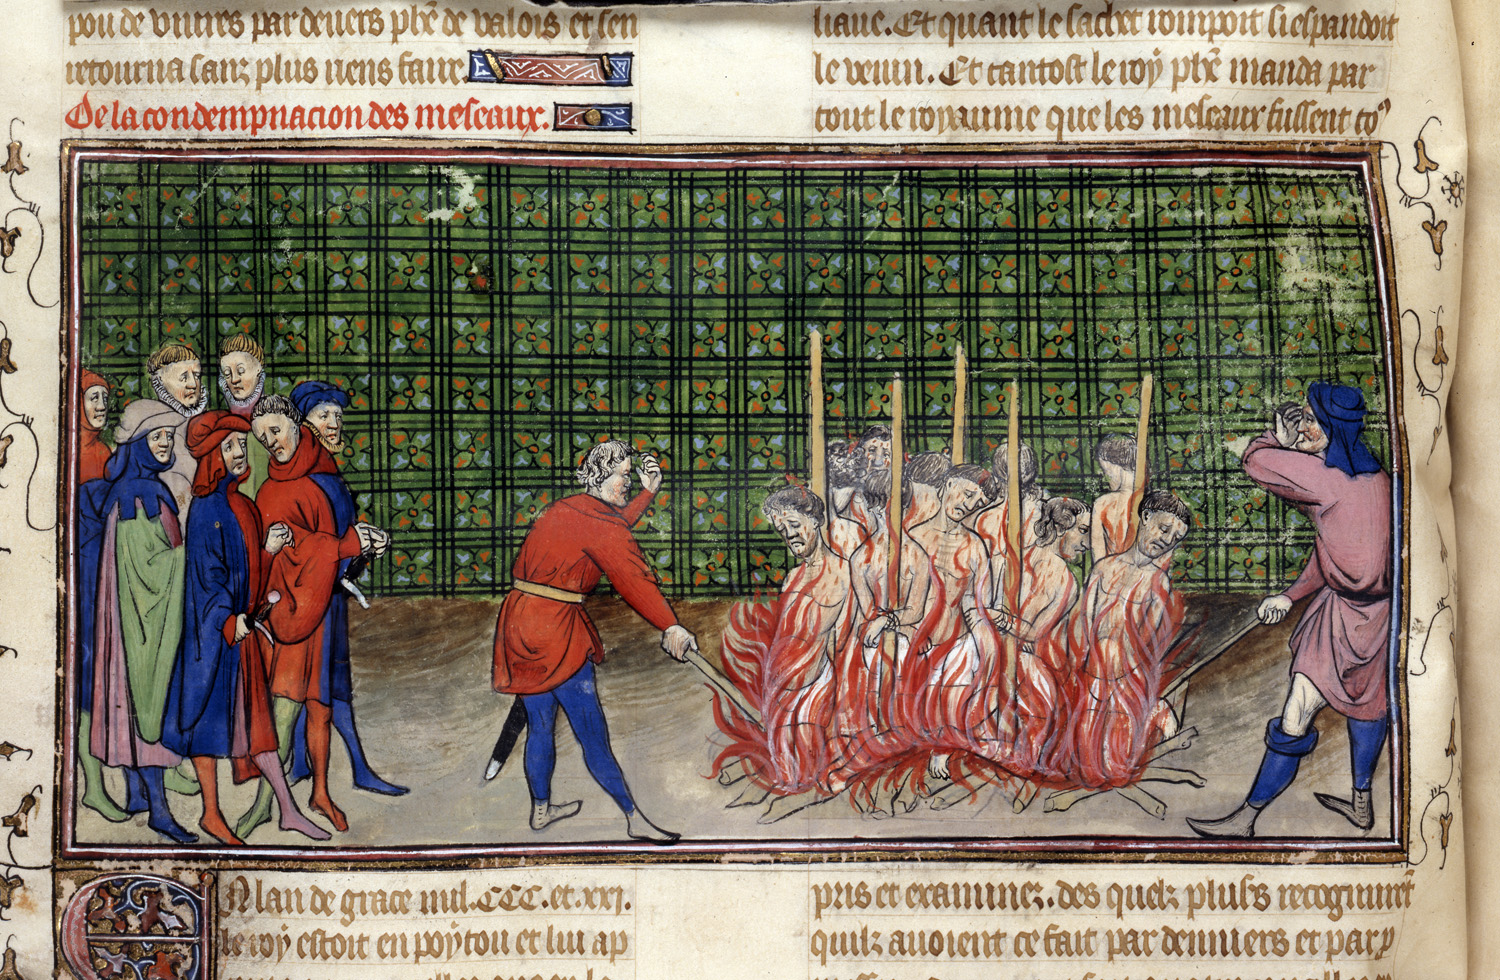 pou de viures par devers phẽ de valois et sen
retourna sanz plus riens faire.
De la condempnacion des meseaux.
En lan de grace mil.CCC.et.xxi.
le roy estoit en poytou et lui ap
liaue. Et quant le sachet rompoit si espandoit
le venin. Et tantost le roy phẽ manda par
tout le royaume que les meseaux fussent co
pris et examinez. des quelz plusrs recognurẽt
quilz auoient ce fait par denniers et par p